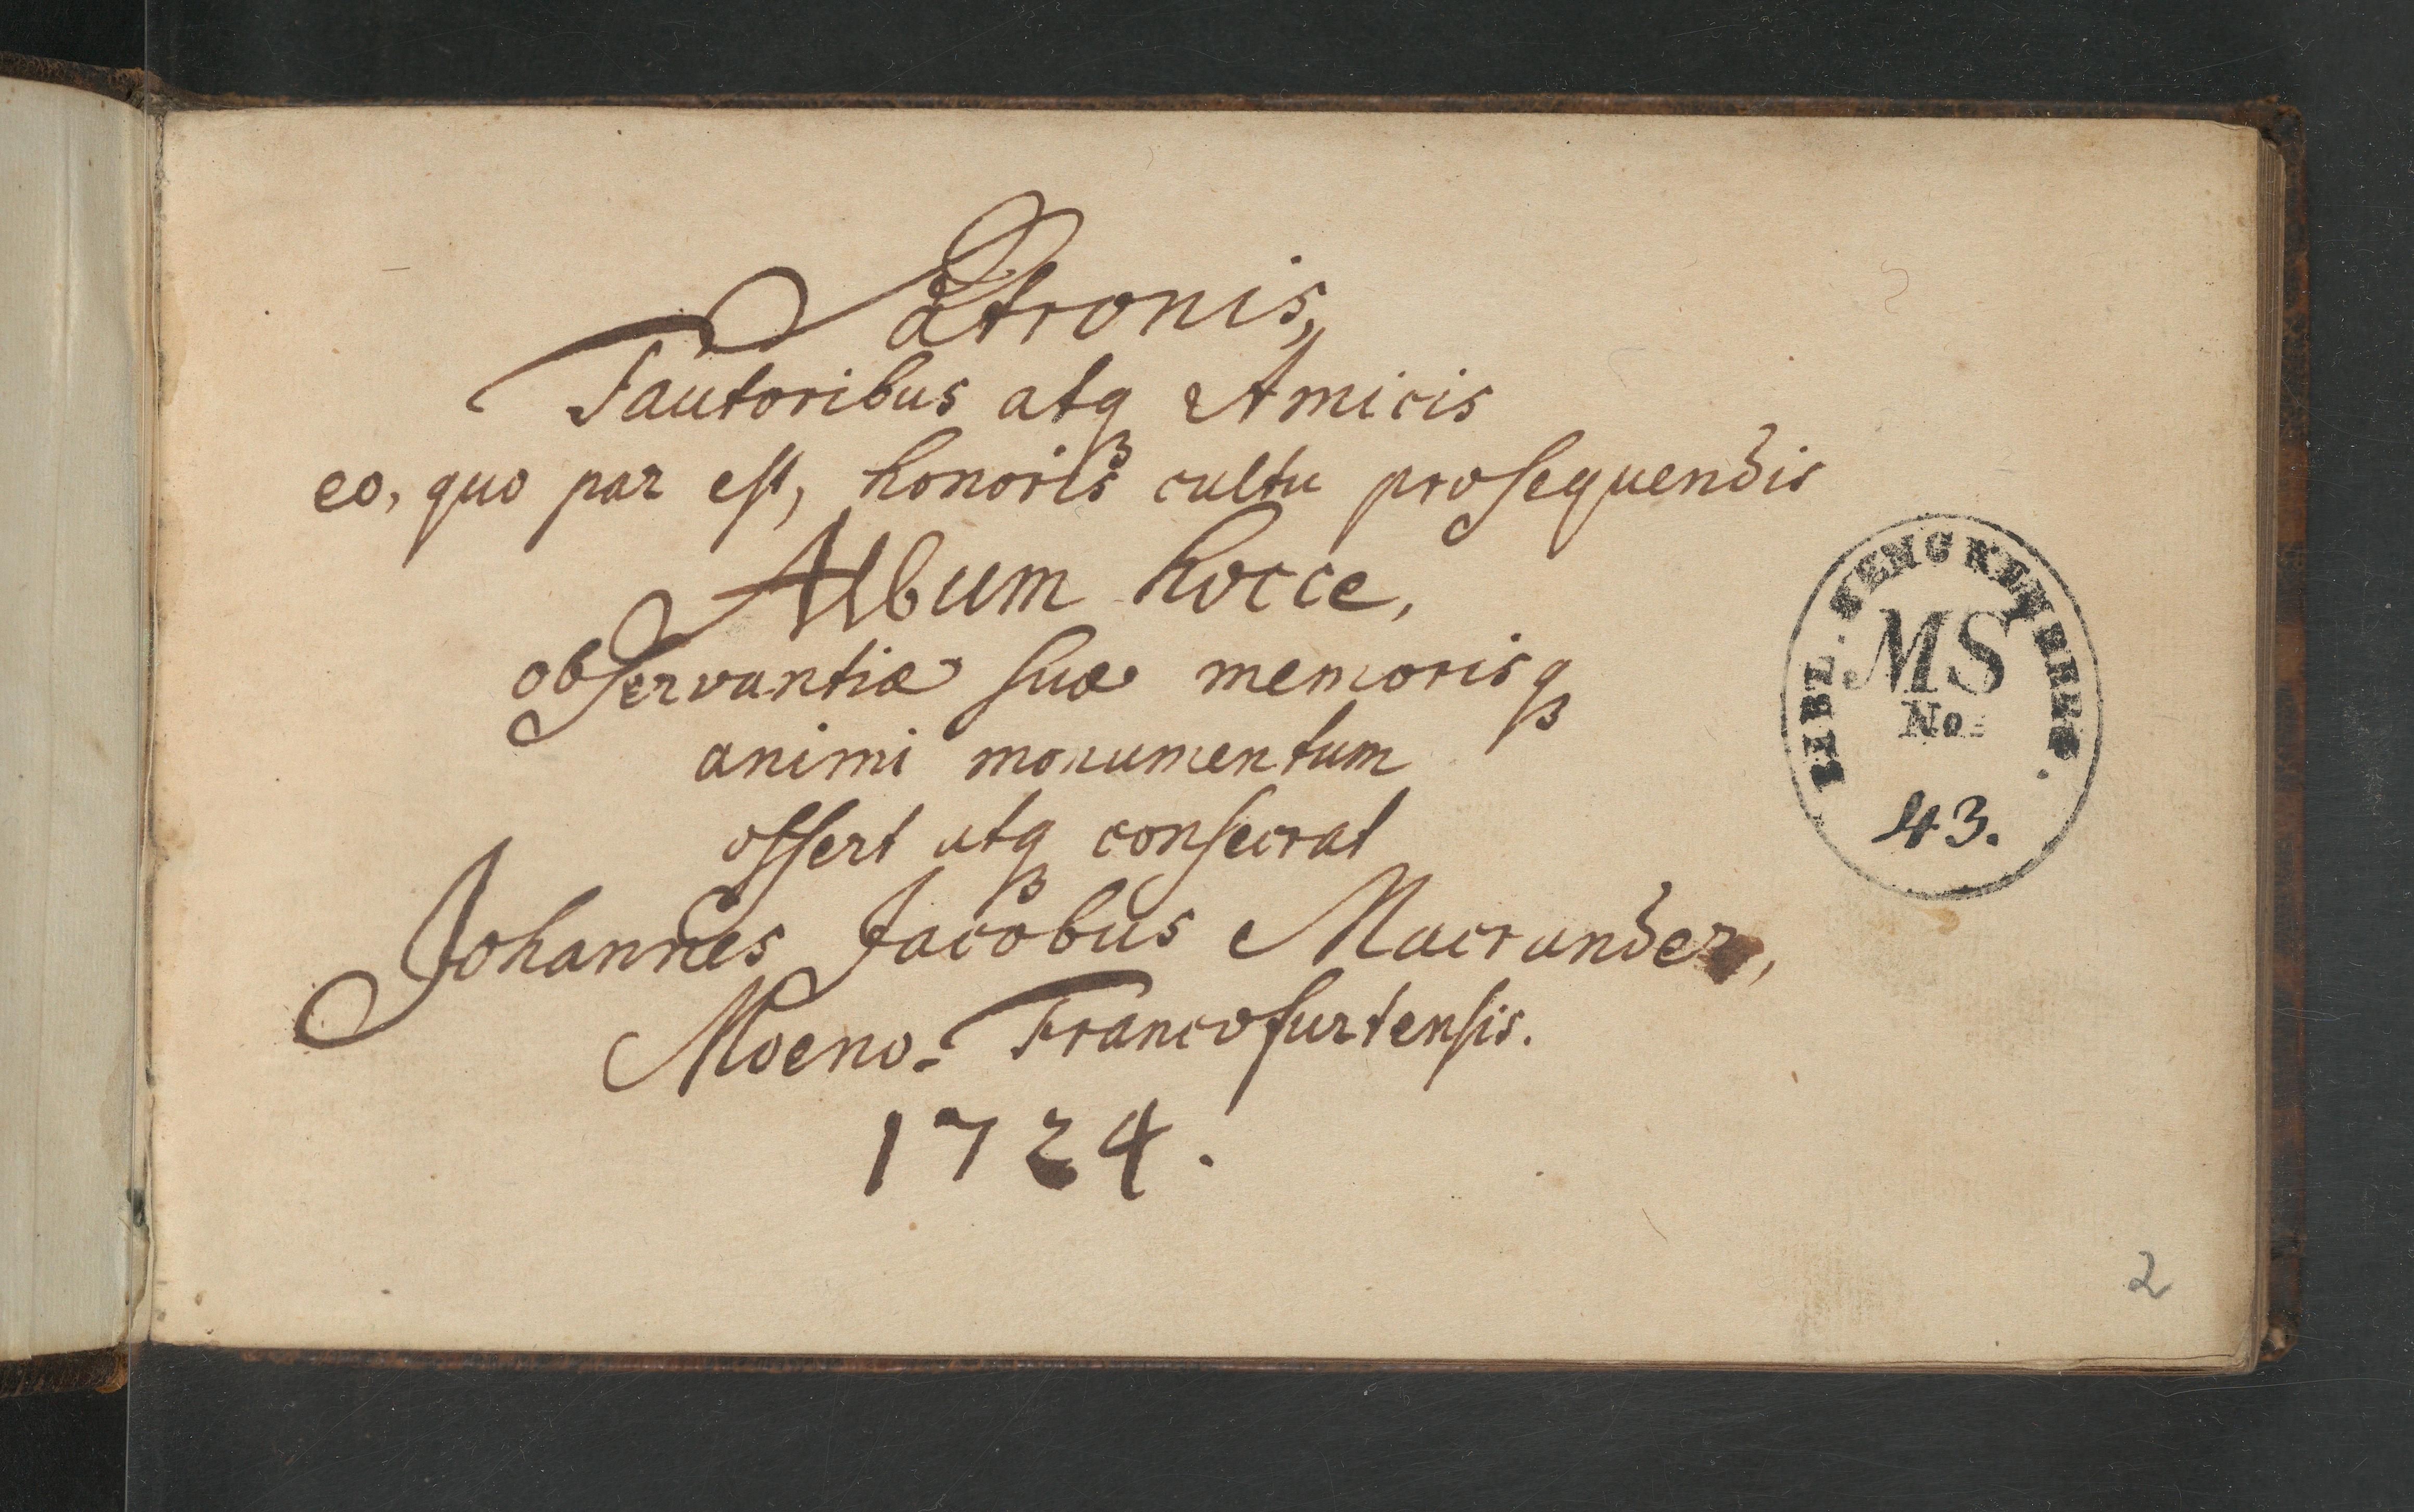 Patronis,
Fautoribus atqꝫ Amicis
eo, quo par est, honoris cultu prosequendis
Album hocce,
observantiæ suæ memorisqꝫ
animi monumentum
offert atqꝫ consecrat
Johannes Jacobus Macrander,
Moeno-Francofurtensis.
1724.
BIBL.
MS
No.
43.
2